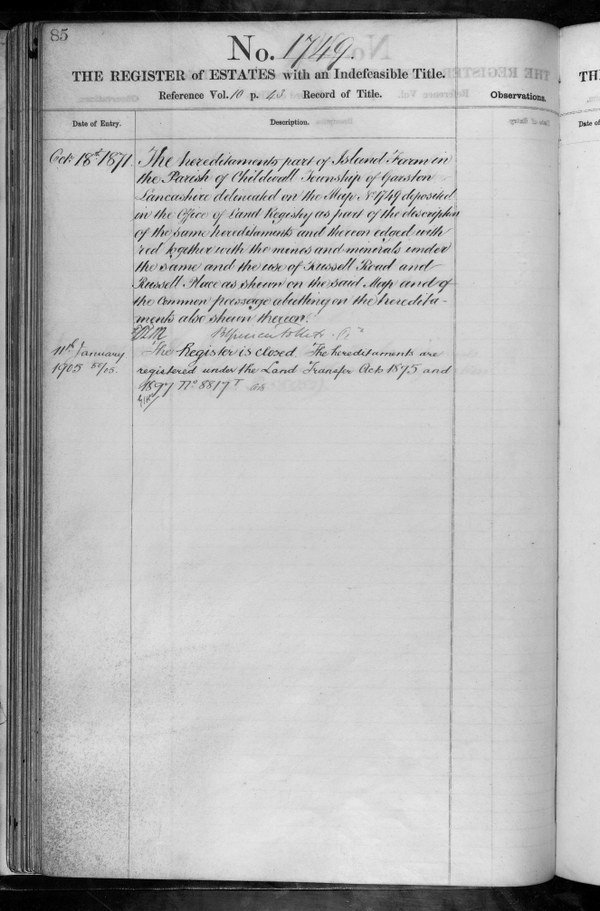 85
No. 1749.
THE REGISTER of ESTATES with an Indefeasible Title.
Reference Vol. 10 p. 48 Record of Title.
Observations.
Date of Entry.
Description.
Octr. 18th 1871
The hereditaments part of Island Farm in
the Parish of Childwall Township of Garston
Lancashire delineated on the Map No 1749 deposited
in the Office of Land Registry as part of the description
of the same hereditaments and thereon edged with
red together with the mines and minerals under
the same and the use of Russell Road and
Russell Place as shown on the said Map and of
the Common passage abutting on the heredita-
ments also shewn thereon.
11th January
1905
The Register is closed. The hereditaments are
registered under the Land Transfer Acts 1875 and
1897 No 8817